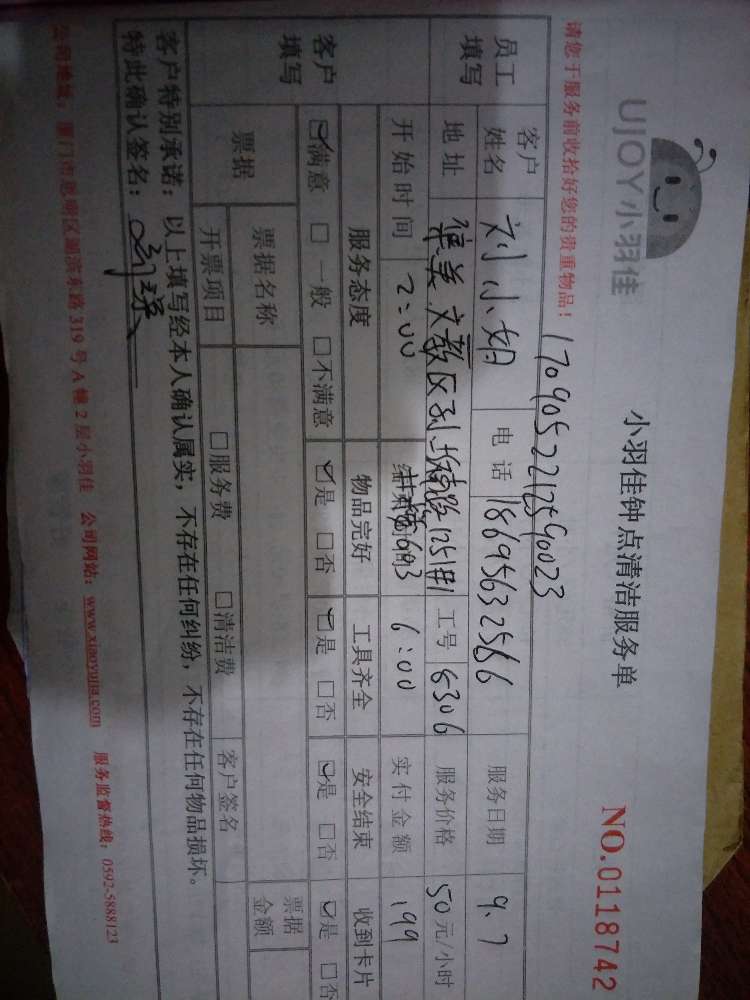 UJOY小羽佳
小羽佳钟点清洁服务单
NO.0118742
请您于服务前收拾好您的贵重物品！
1709052212590023
员工填写
客户姓名 刘小姐 电话 18695632566 服务日期 9.7
地址 集美文教区 工号 6306 服务价格 50元/小时
开始时间 2:00 结束时间 6:00 实付金额 199
客户填写
服务态度 物品完好 工具齐全 安全结束 收到卡片
☑满意 □一般 □不满意 ☑是 □否 ☑是 □否 ☑是 □否 ☑是 □否
票据 票据名称 票据金额
开票项目 □服务费 □清洁费 客户签名
客户特别承诺：以上填写经本人确认属实，不存在任何纠纷，不存在任何物品损坏。
特此确认签名：
公司地址：厦门市思明区湖滨东路319号A幢2层小羽佳 公司网站：www.xiaoyujia.com 服务监督热线：0592-5888123